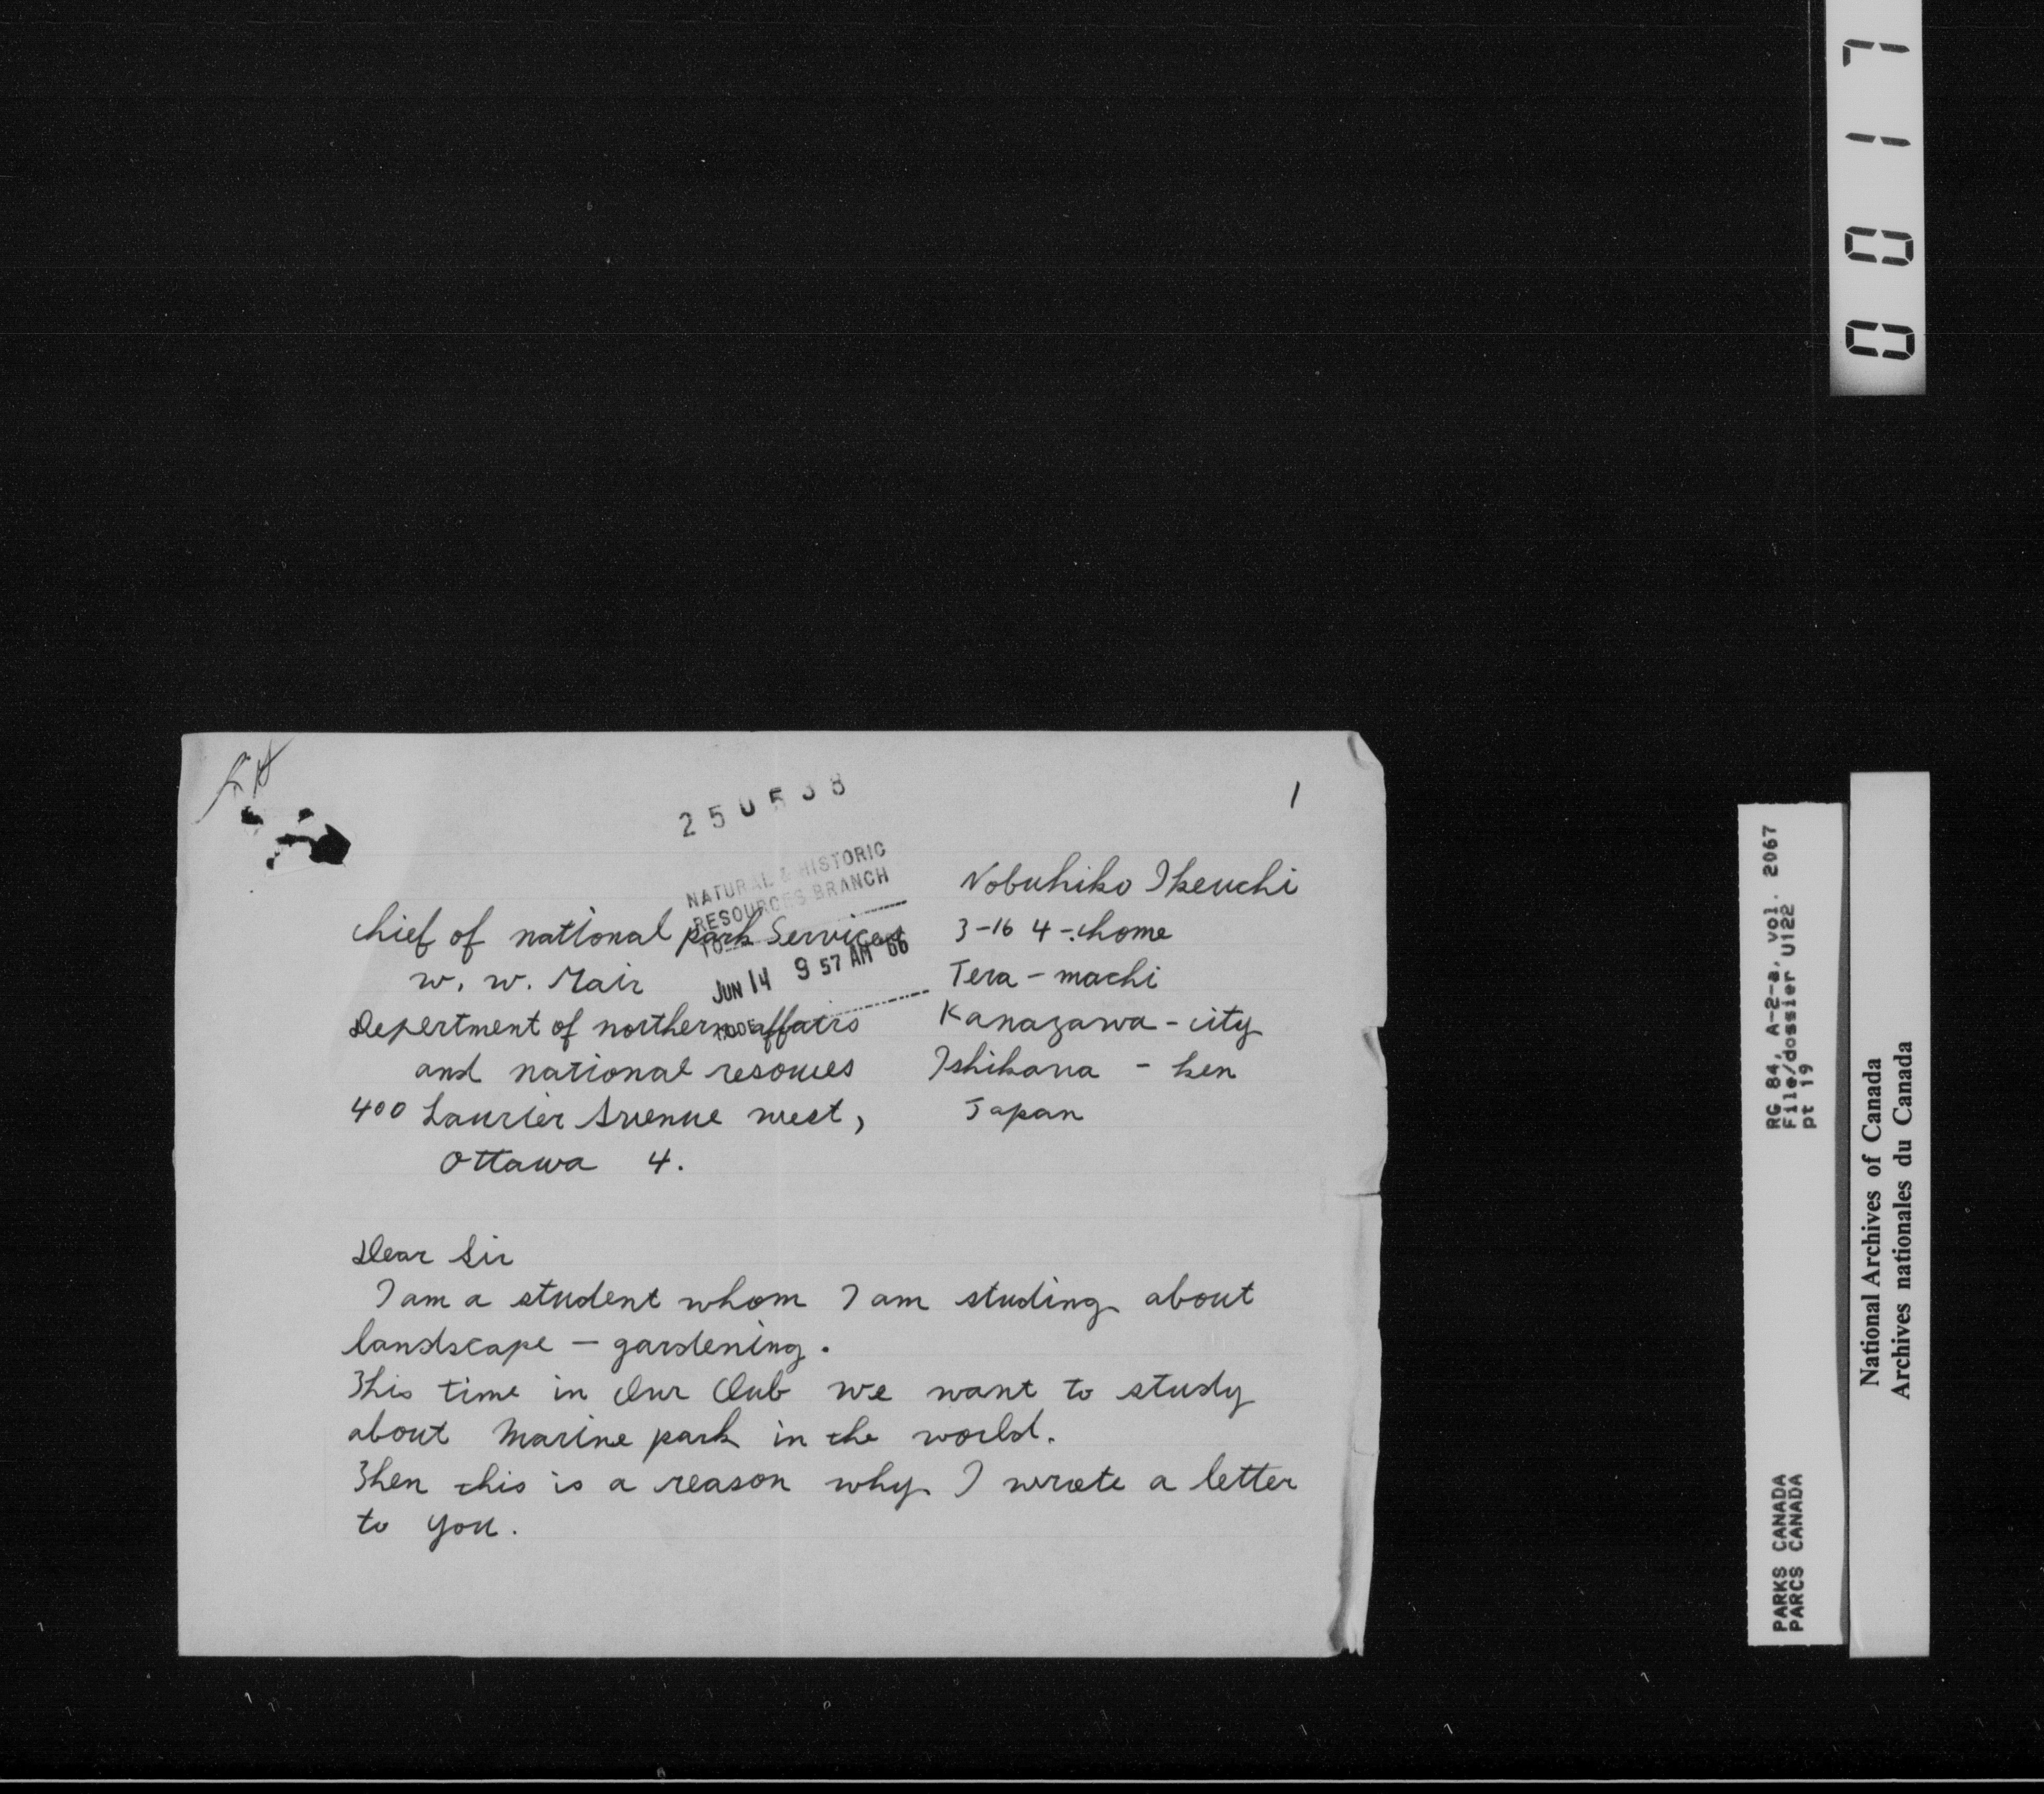 0017
1
250538
NATURAL & HISTORIC
RESOURCES BRANCH
TO
JUN 14 9 57 AM '66
Nobuhiko Ikeuchi
3-16 4-chome
Tera - machi
Kanazawa - city
Ishikawa - ken
Japan
chief of national park Service
w. w. Mair
Depertment of northern affairs
and national resouces
400 Laurier Avenue west,
Ottawa 4.
Dear Sir
I am a student whom I am studing about
landscape - gardening.
This time in Our Club we want to study
about Marine park in the world.
Then this is a reason why I wrote a letter
to you.
RG 84, A-2-a, vol. 2067
File/dossier U122
pt 19
PARKS CANADA
PARCS CANADA
National Archives of Canada
Archives nationales du Canada